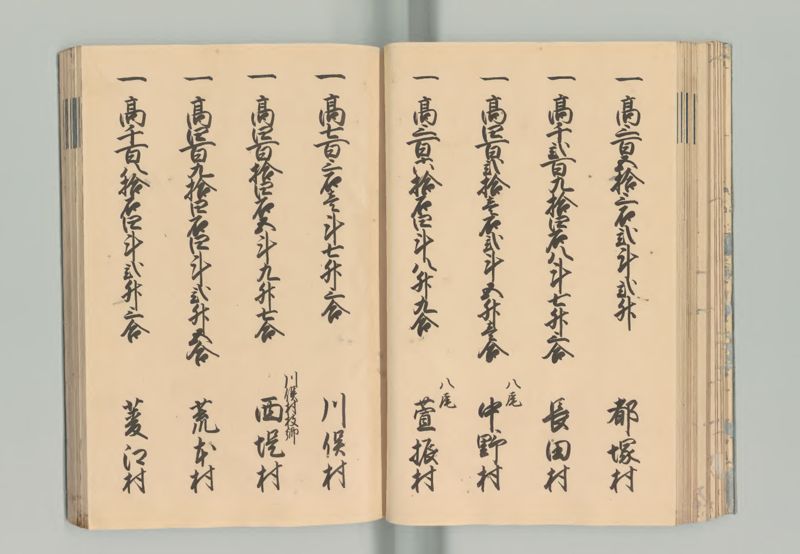 一 高三百五拾三石弐斗弐升
都塚村
一 高千弐百九拾四石八斗七升三合
長田村
一 高四百弐拾壱石弐斗五升壱合
八尾
中野村
一 高三百八拾石四斗八升九合
八尾
萱振村
一 高七百三石壱斗七升三合
川俣村
一 高四百拾四石五斗九升七合
川俣村枝郷
西堤村
一 高四百九拾四石四斗弐升五合
荒本村
一 高千百八拾石四斗弐升三合
菱江村